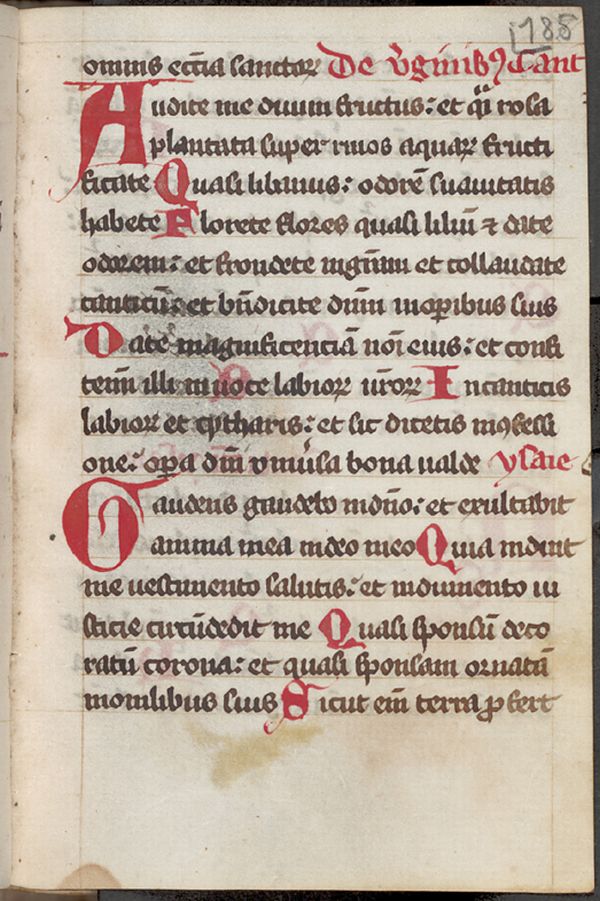 185
omnis eccĩa sanctoꝝ De v̾ginibꝰ Cant
Audite me diuini fructus: et q̃i rosa
plantata super riuos aquaꝝ fructi
ficate Quasi libanus: odorẽ suauitatis
habete Florete flores quasi liliũ ⁊ date
odorem: et frondete in grãm et collaudate
canticũ: et bñdicite dñm in oꝑibus suis
Date magnificenciã noĩ eius: et confi
temĩ illi in uoce labioꝝ ur̃oꝝ In canticis
labioꝝ et cytharis: et sic dicetis in ꝯfessi
one: oꝑa dñi vniũsa bona ualde ysaie
Gaudens gaudebo in dño: et exultabit
anima mea in deo meo Quia induit
me uestimento salutis: et indumento iu
sticie circũdedit me Quasi sponsũ deco
ratũ corona: et quasi sponsam ornatã
monilibus suis Sicut eñi terra ꝓfert